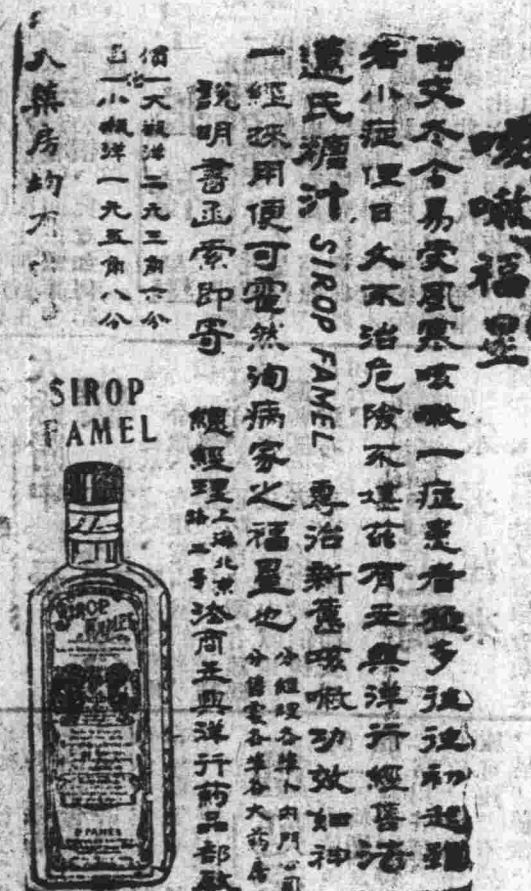 咳嗽福星
時交冬令易受風寒咳嗽一症患者極多往往初起雖
若小症但日久不治危險不堪茲有五興洋行經售法
邁氏糖汁 SIROP FAMEL 專治新舊咳嗽功效如神
一經採用便可霍然洵病家之福星也 分經理各埠卜內門公司
分售處各埠各大葯房
說明書函索即寄 總經理上海北京路二号法商五興洋行葯品部啟
價
大瓶洋二元三角六分
小瓶洋一元五角八分
大藥房均有
SIROP
FAMEL
SIROP
FAMEL
P FAMEL